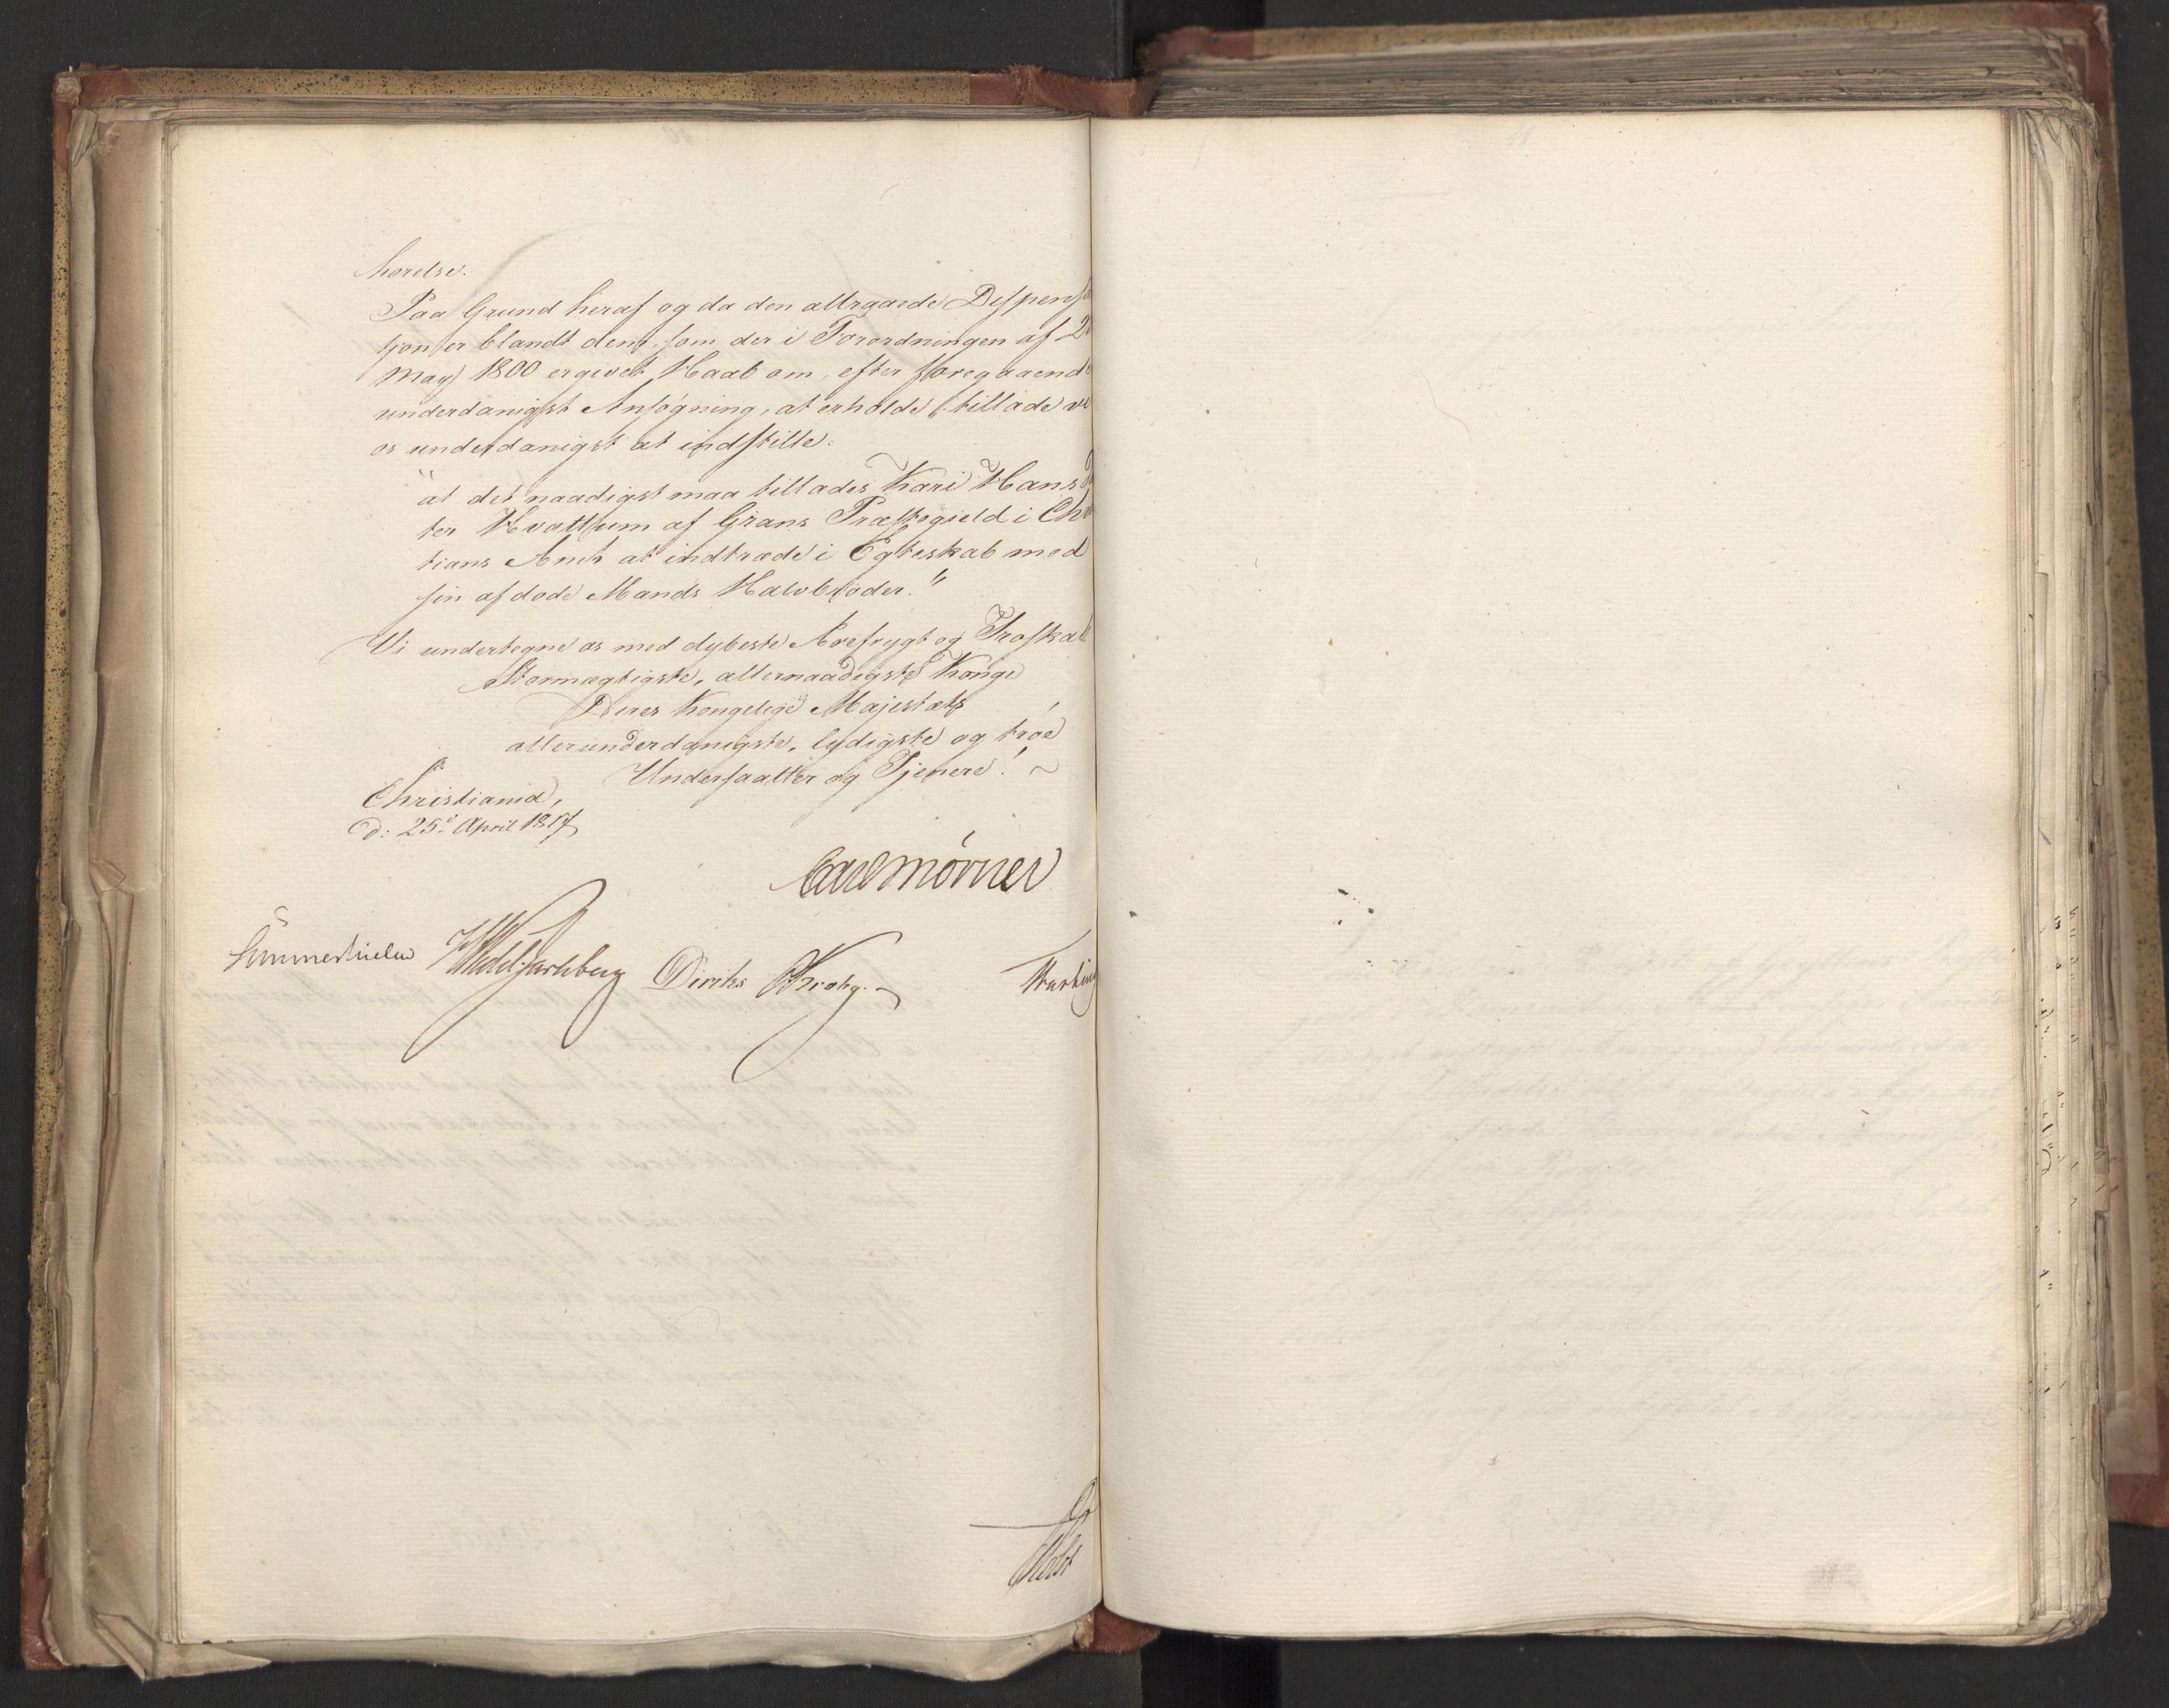 hørelse.
Paa Grund heraf og da den attraaede Dispensa
tjon er blandt dem, som der i Forordningen af 2
May 1800 er givet Haab om, efter foregaaende
underdanigst Ansøgning, at erholde, tillade vi
os underdanigst at indstille:
"at det naadigst maa tillades Kari Hansd
ter Hvattum af Grans Præstegield i Chri
tians Amt at indtræde i Egteskab med
sin afdøde Mands Halvbroder."
Vi undertegne os med dybeste Ærefrygt og Troskab
Stormægtigste, allernaadigste Konge
Deres Kongelige Majestæts
allerunderdanigste, lydigste og troe
Undersaatter og Tjenere!
Christiania,
d: 25de April 1817
Carl Mörner
Sommerhielm HWedel Jarlsberg Diriks Krohg.
Holst